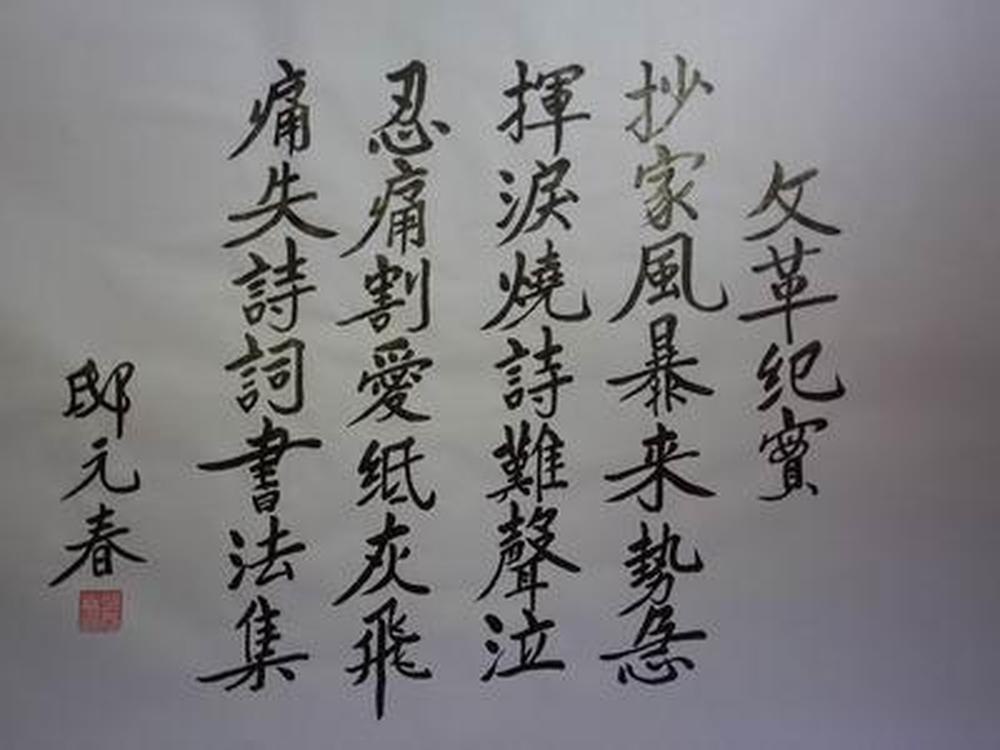 文革纪實
抄家風暴来勢急
揮淚燒詩難聲泣
忍痛割愛紙灰飛
痛失詩詞書法集
邸元春